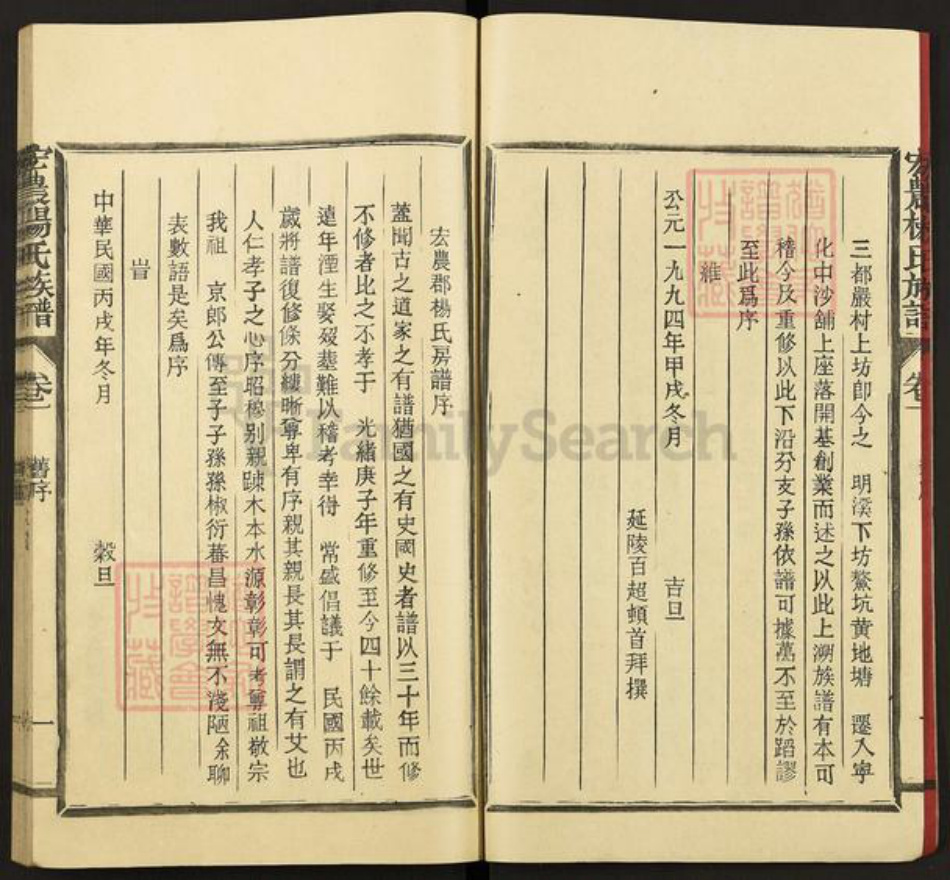 三都嚴村上坊卽今之　明溪下坊鰲坑黄地塘　遷入寧
化中沙舖上座落開基創業而述之以此上溯族譜有本可
稽今及重修以此下沿分支子孫依譜可據萬不至於蹈謬
至此爲序
維
公元一九九四年甲戌冬月　吉旦
延陵百超頓首拜撰
宏農郡楊氏房譜序
蓋聞古之道家之有譜猶國之有史國史者譜以三十年而修
不修者比之不孝于　光緒庚子年重修至今四十餘載矣世
遠年湮生娶殁塟難以稽考幸得　常盛倡議于　民國丙戌
歲將譜復修條分縷晰尊卑有序親其親長其長謂之有艾也
人仁孝子之心序昭穆别親踈木本水源彰彰可考尊祖敬宗
我祖　京郎公傳至子子孫孫椒衍蕃昌愧女無不淺陋余聊
表數語是矣爲序
旹
中華民國丙戌年冬月　穀旦
宏農楊氏族譜　卷一　舊序　一
FamilySearch